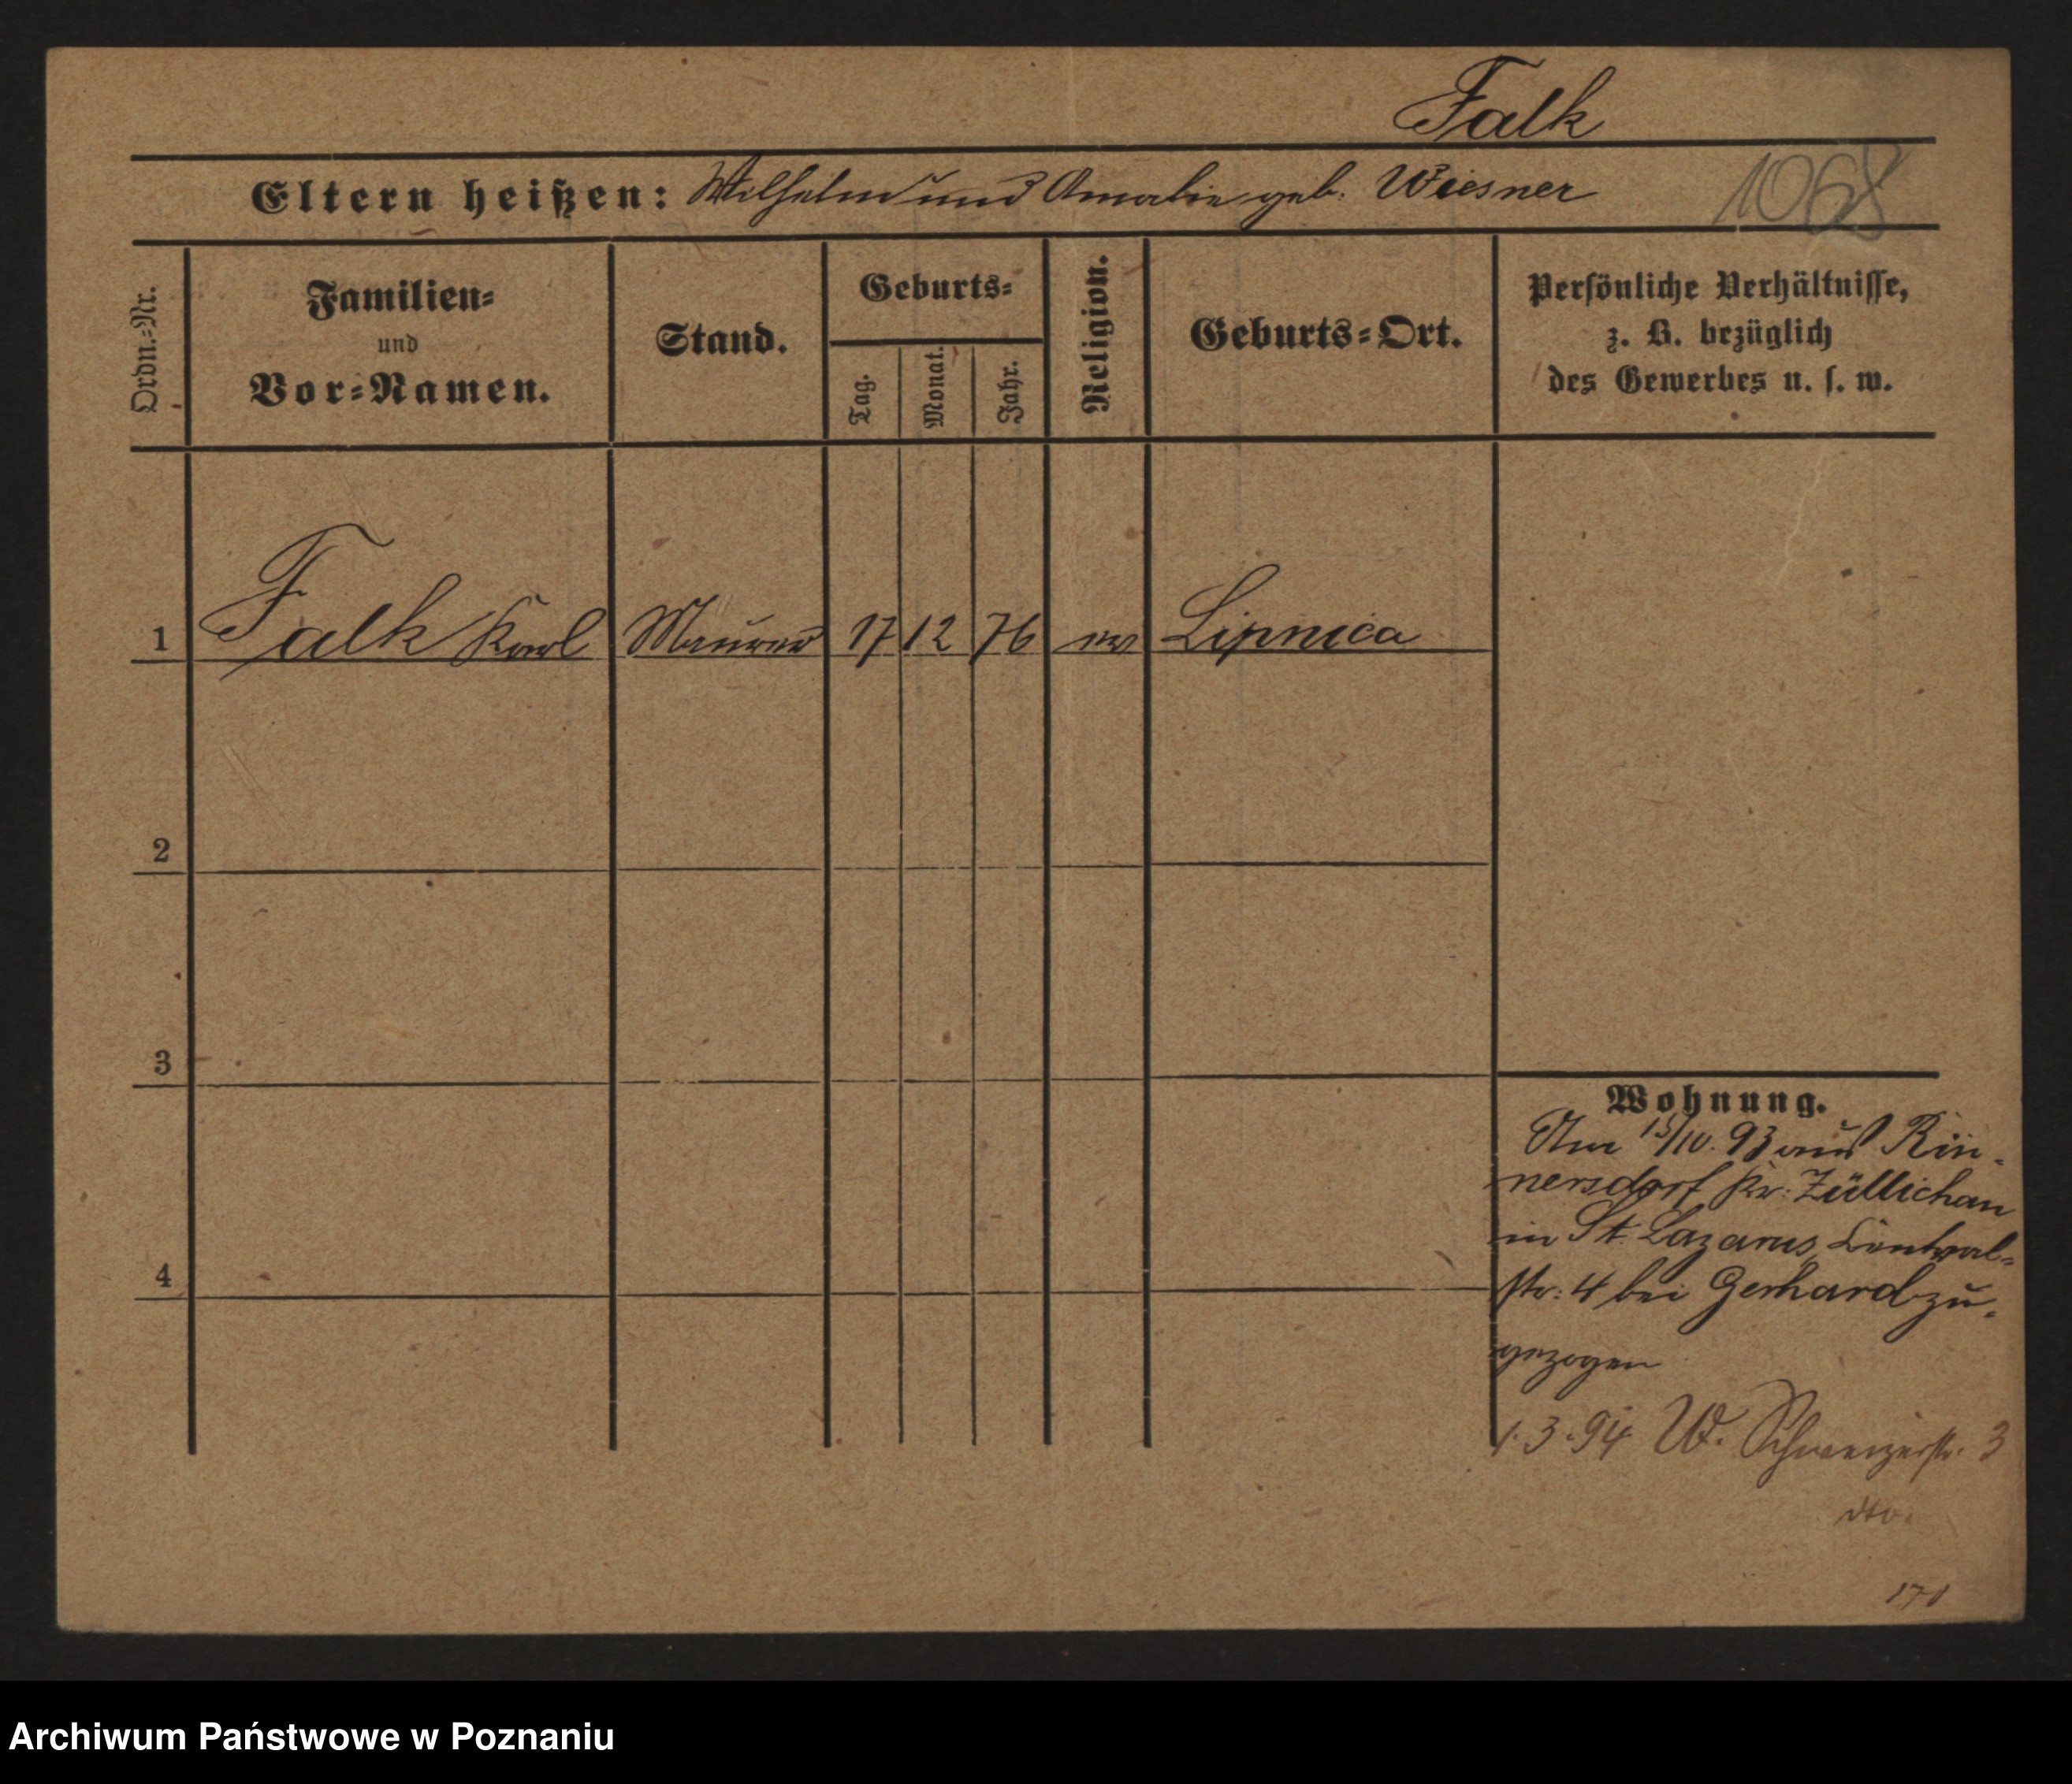 Falk
Eltern heißen: Wilhelm und Amalie geb. Wiesner
1068
Ordn.-Nr.
Familien-
und
Vor-Namen.
Stand.
Geburts-
Tag.
Monat.
Jahr.
Religion.
Geburts-Ort.
Persönliche Verhältnisse,
z. B. bezüglich
des Gewerbes u. s. w.
1 Falk Karl Maurer 17 12 76 ev Lipnica
2
3
4
Wohnung.
Am 15/10. 93 aus Rin-
nersdorf Kr: Züllichau
in St. Lazarus, Central-
str: 4 bei Gerhard zu-
gezogen
1.3.94 W. Schweizerstr. 3
dto.
171
Archiwum Państwowe w Poznaniu